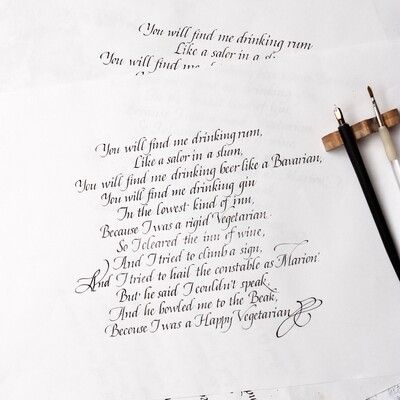 You will find me drinking rum
Like a salor in a
You will find me
You will find me drinking rum,
Like a salor in a slum,
You will find me drinking beer like a Bavarian,
You will find me drinking gin
In the lowest kind of inn,
Because I was a rigid Vegetarian.
So I cleared the inn of wine,
And I tried to climb a sign,
And I tried to hail the constable as "Marion"
But he said I couldn't speak,
And he bowled me to the Beak,
Becouse I was a Happy Vegetarian